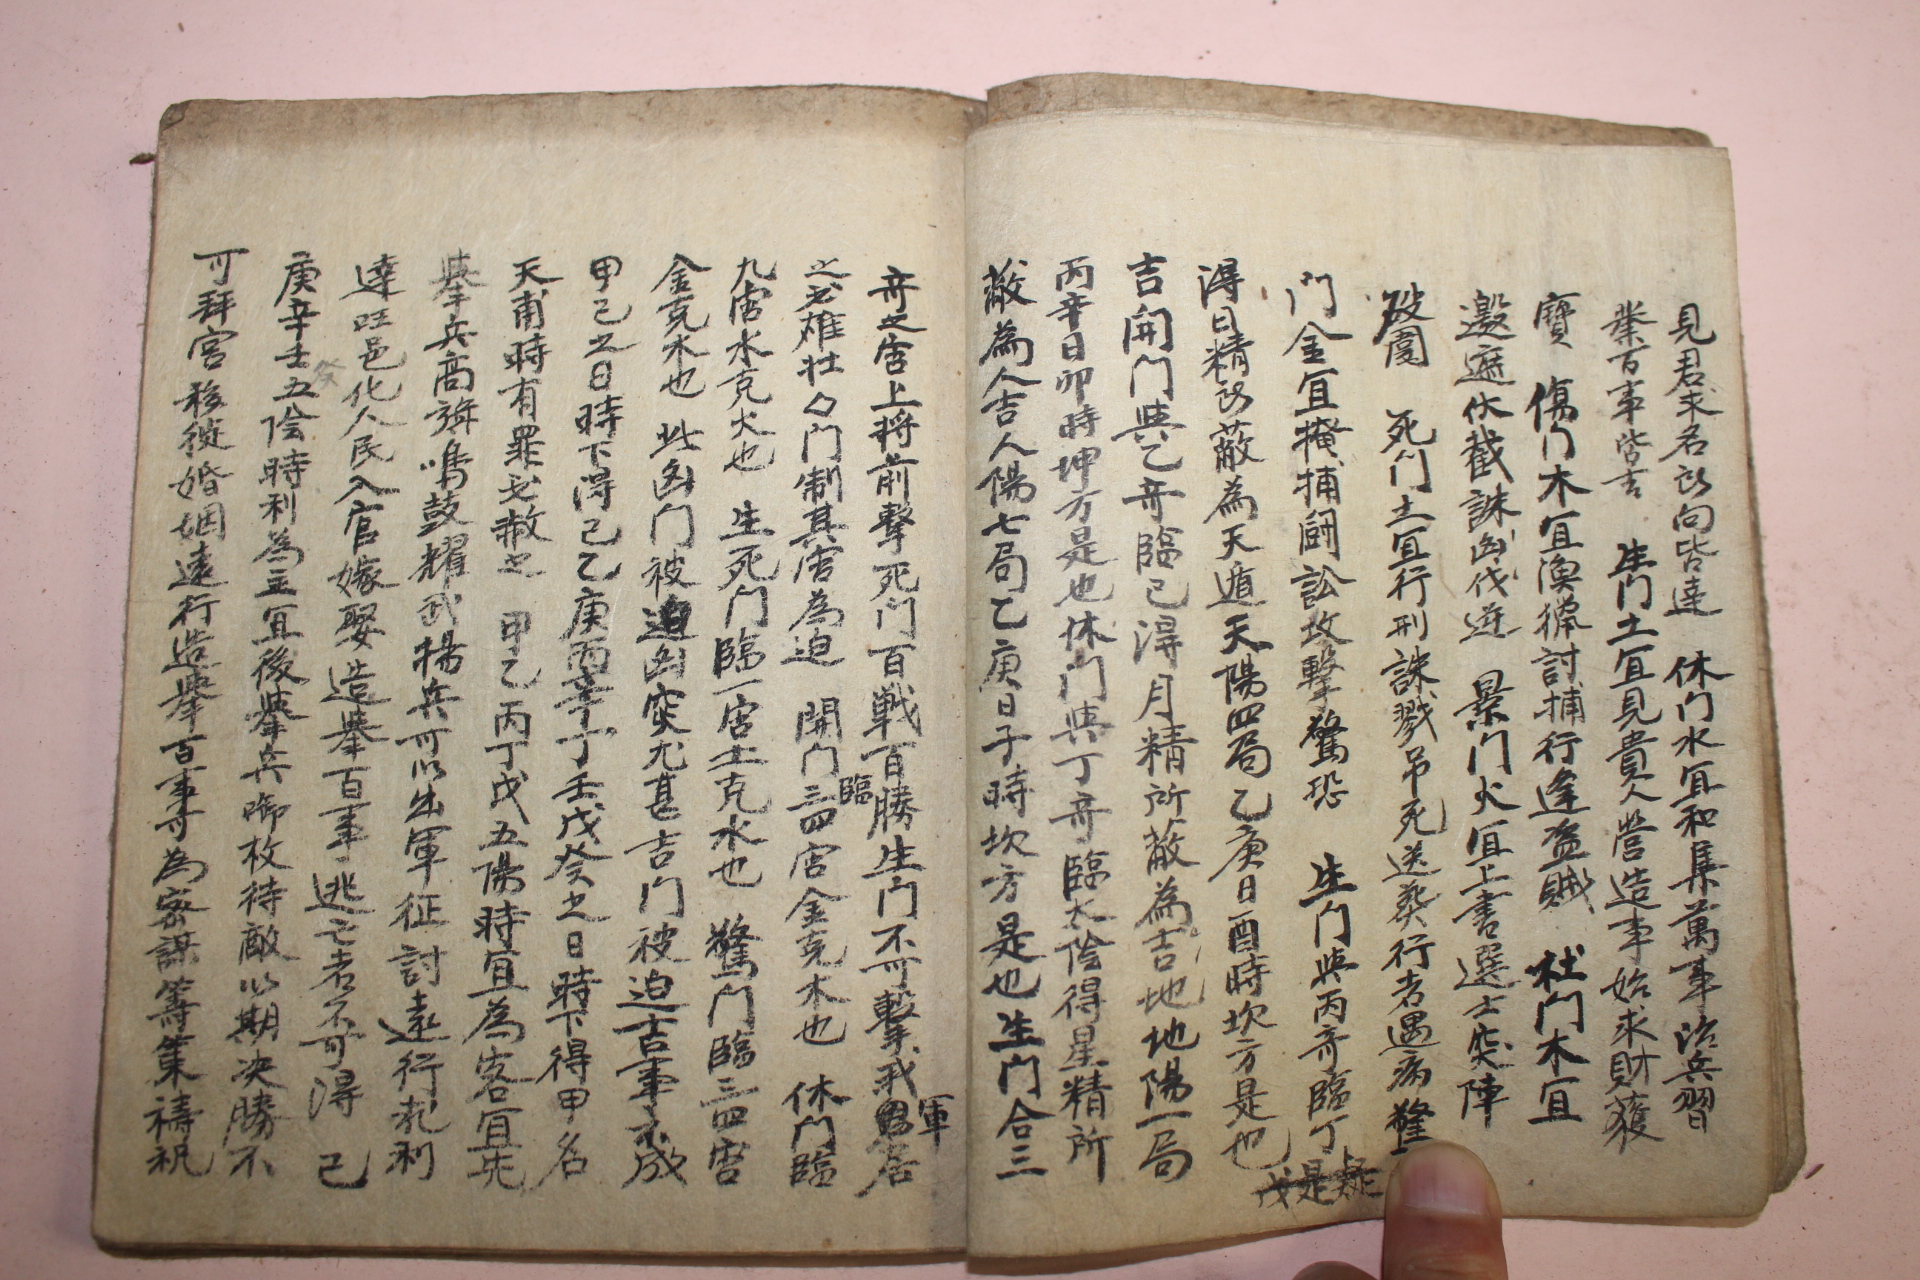 見君求名所向皆達　休門水宜和集萬事治兵習
業百事皆吉　生門土宜見貴人營造事始求財獲
寶　傷門木宜漁獵討捕行逢盜賊　杜門木宜
邀遮伏截誅凶伐逆　景門火宜上書選士突陣
破圍　死門土宜行刑誅戮吊死送葬行者遇病　驚
門金宜掩捕鬪訟攻擊驚恐　生門與丙奇臨丁
戊是疑
得日精所蔽為天遁天陽四局乙庚日酉時坎方是也
吉開門與乙奇臨己得月精所蔽為吉地地陽一局
丙辛日卯時坤方是也休門與丁奇臨太陰得星精所
蔽為人吉人陽七局乙庚日子時坎方是也生門合三
奇之宮上將前擊死門百戰百勝生門不可擊我軍居
之必雄壯々門制其宮為迫　開門臨三四宮金克木也　休門臨
九宮水克火也　生死門臨一宮土克水也　驚門臨三四宮
金克木也　此凶門被迫凶突尤甚吉門被迫吉事不成
甲己之日時下得己乙庚丙辛丁壬戊癸之日時下得甲名
天甫時有罪必赦之　甲乙丙丁戊五陽時宜為客宜先
擧兵高旗鳴鼓耀武揚兵可以出軍征討遠行求利
達旺邑化人民入官嫁娶造擧百事逃亡者不可得　己
庚辛壬癸五陰時利為主宜後擧兵啣枚待敵以期決勝不
可拜官移徙婚姻遠行造擧百事可為密謀筹策禱祝